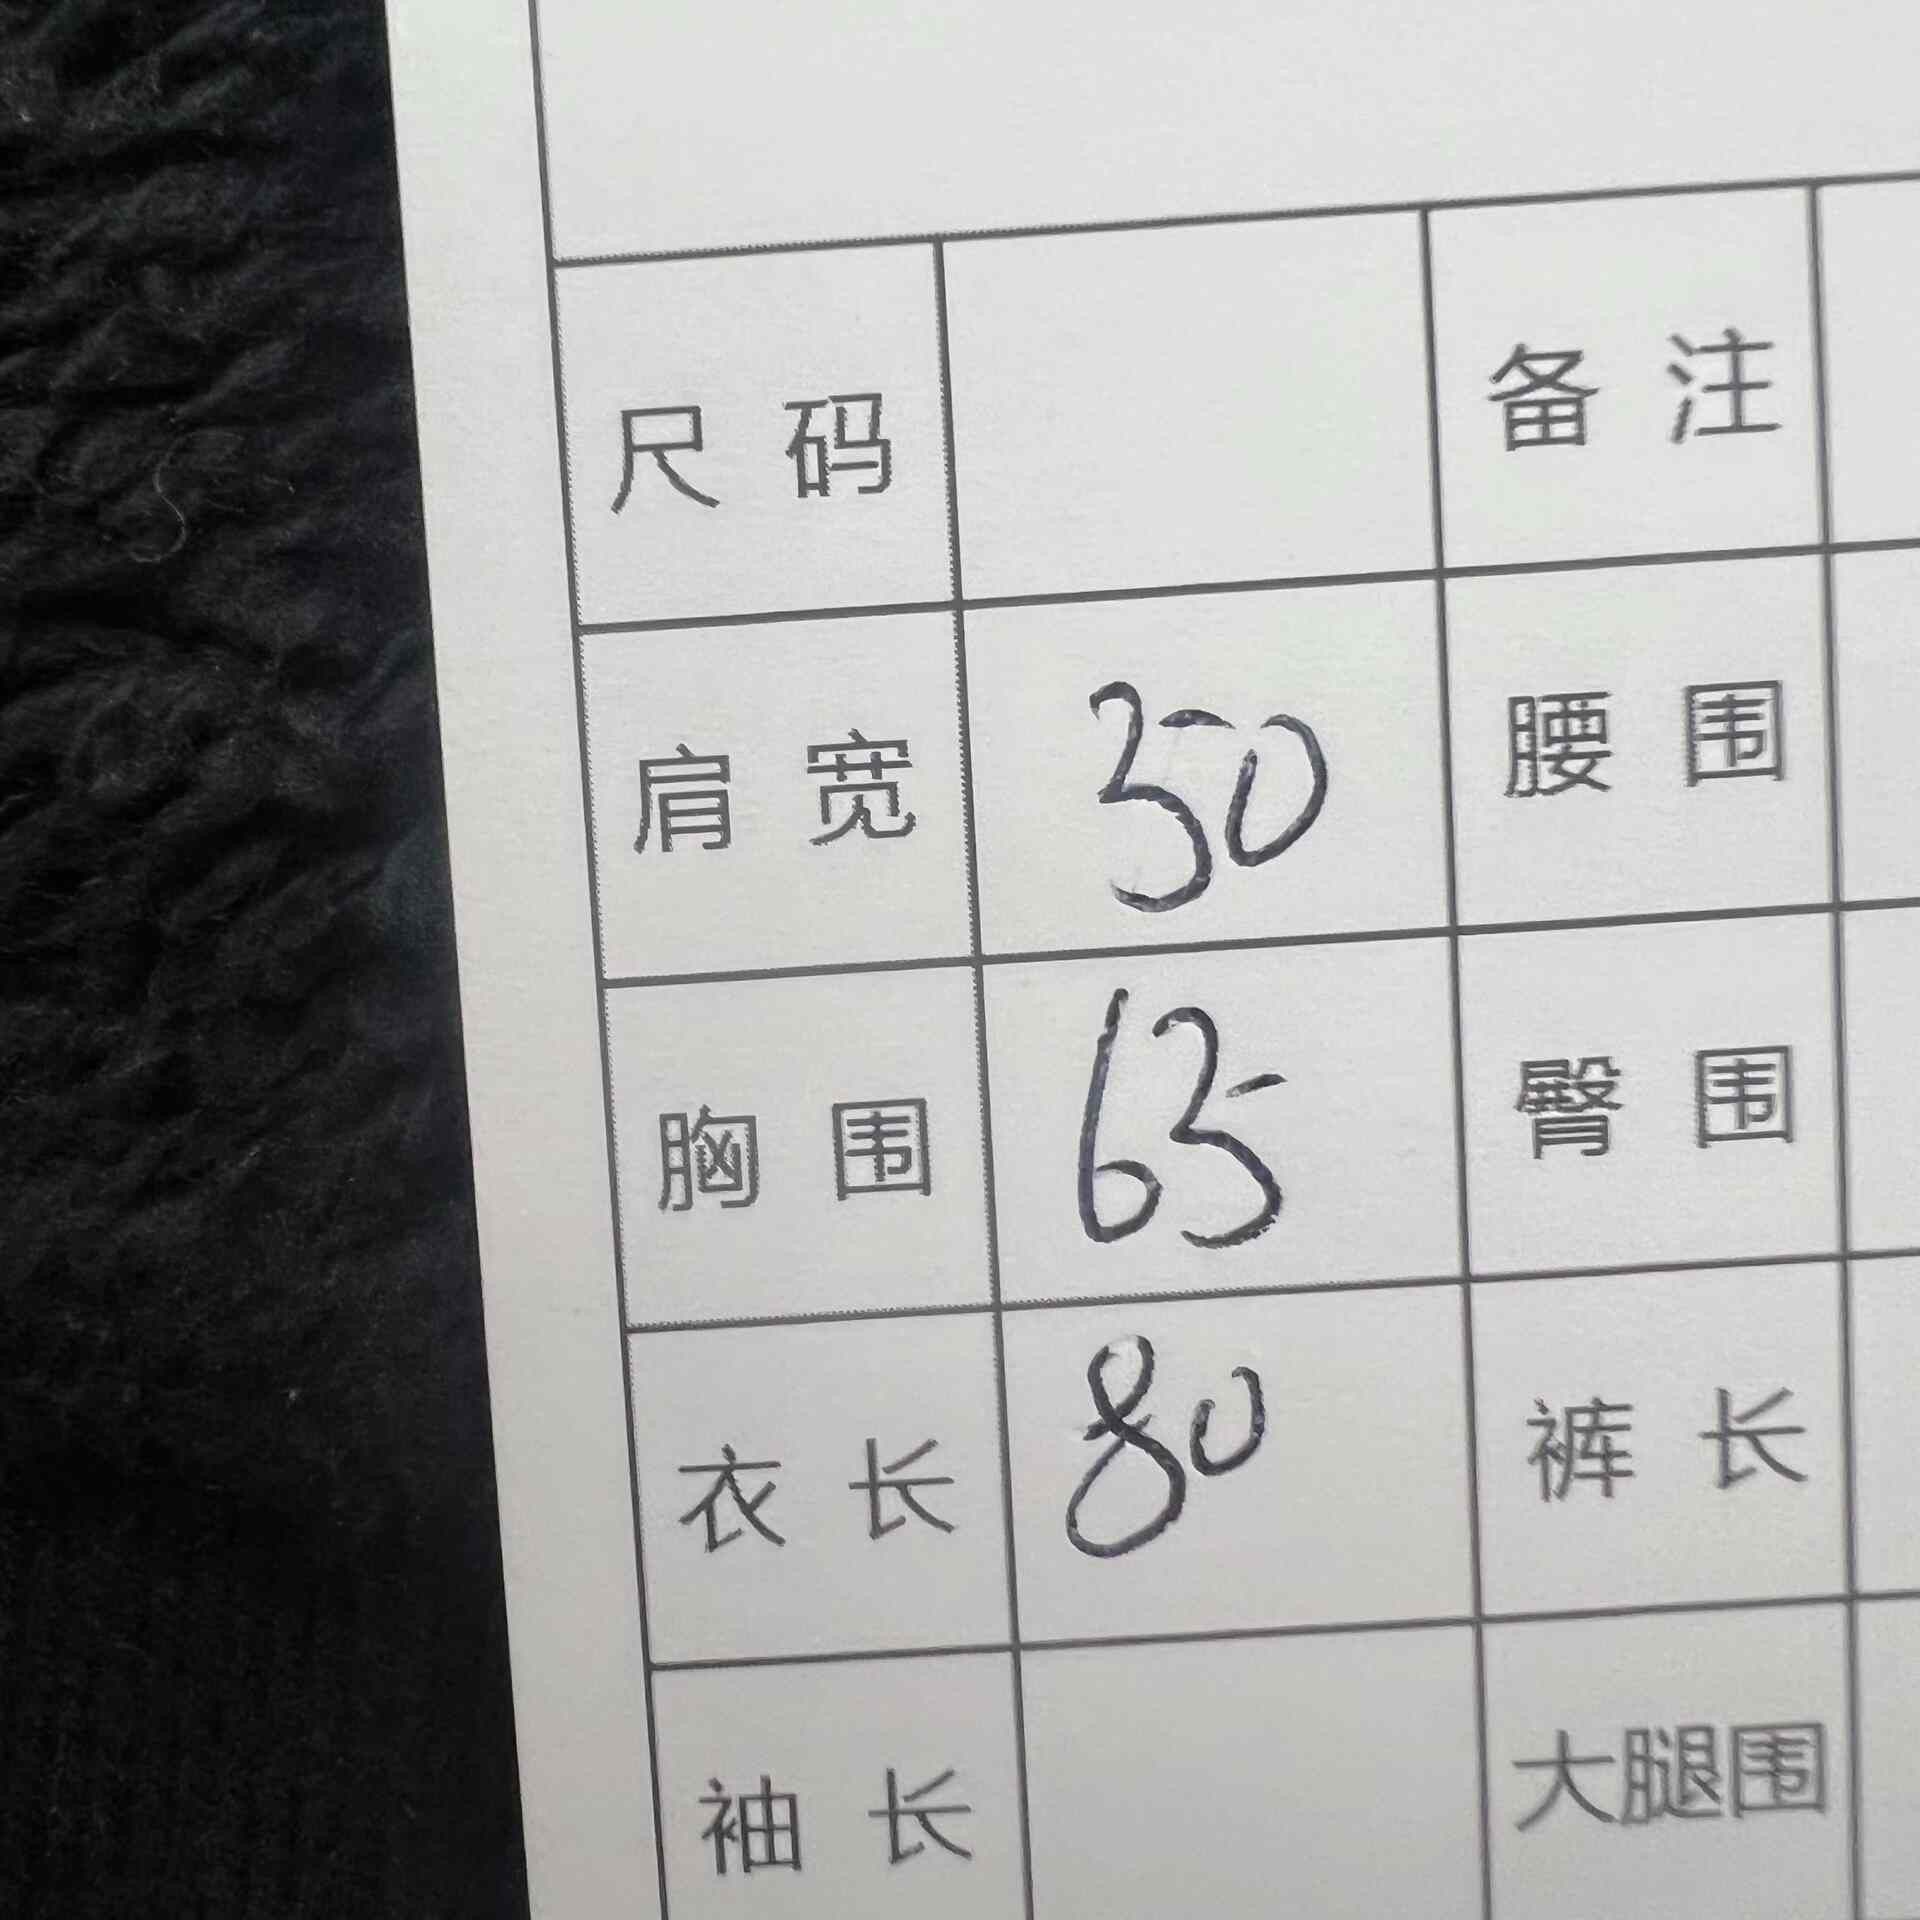 尺码 备注
肩宽 50 腰围
胸围 65 臀围
衣长 80 裤长
袖长 大腿围